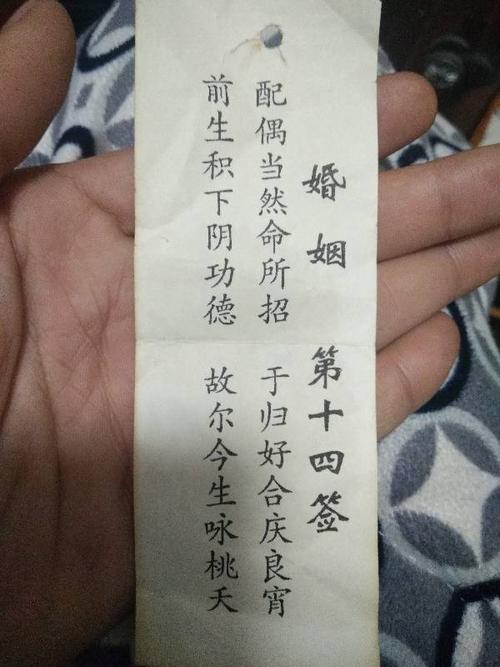 婚姻 第十四签
配偶当然命所招 于归好合庆良宵
前生积下阴功德 故尔今生咏桃夭